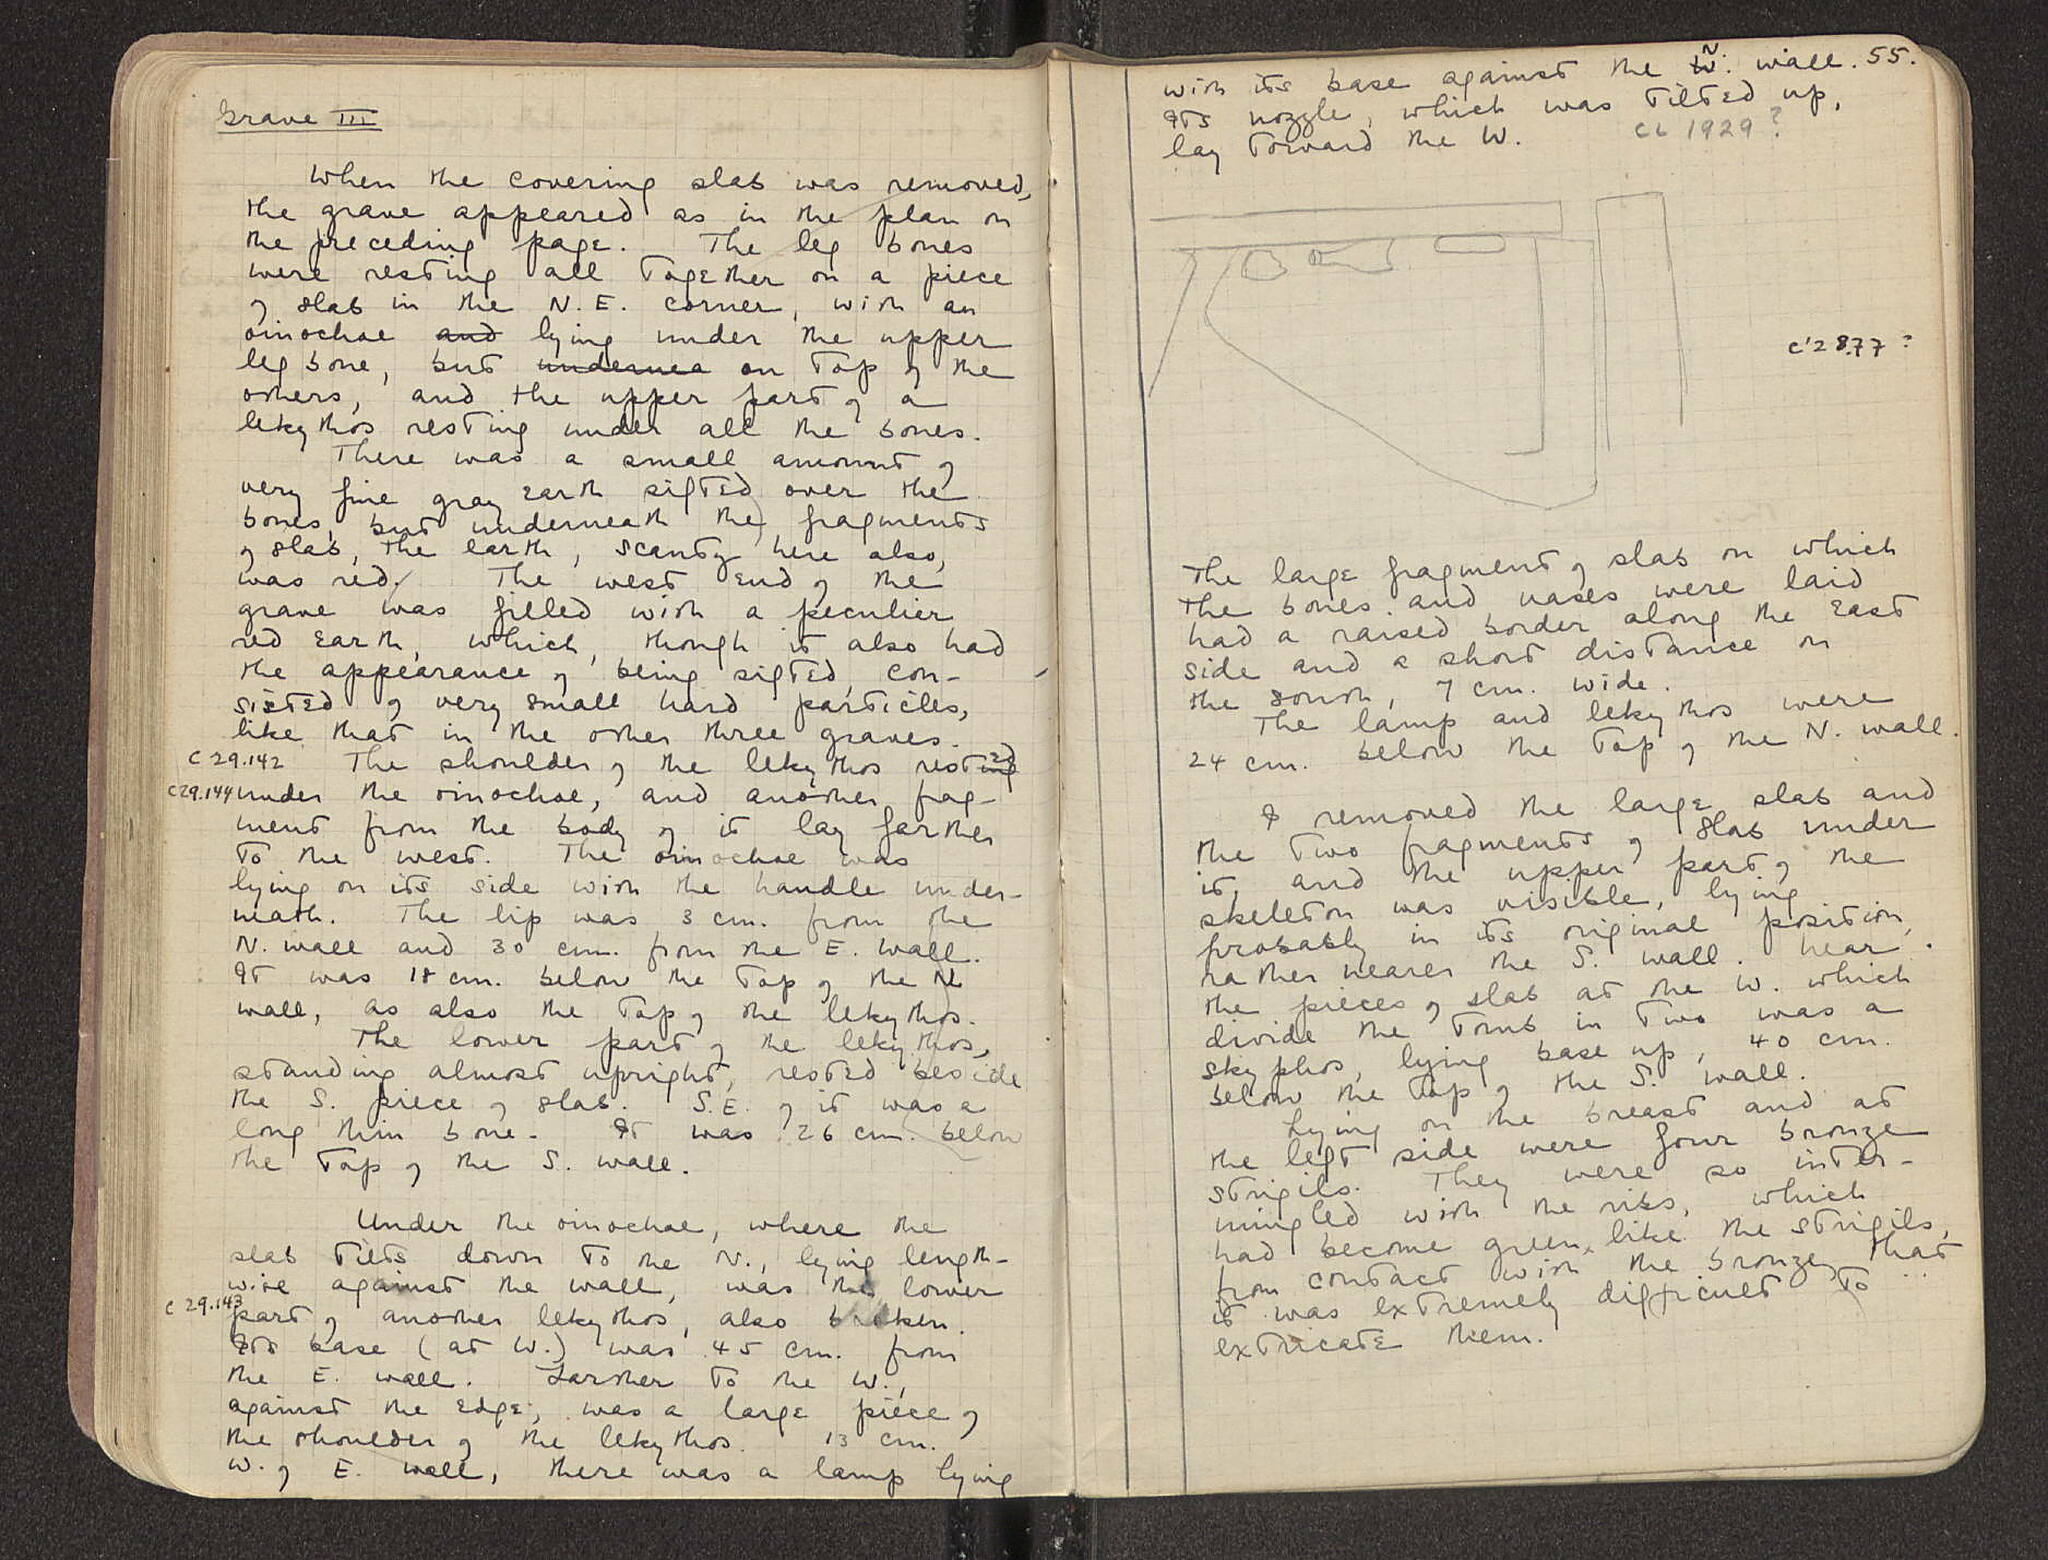 Grave III
When the covering slab was removed,
the grave appeared as in the plan on
the preceding page. The leg bones
were resting all together on a piece
of slab in the N.E. corner, with an
oinochoe and lying under the upper
leg bone, but undernea on top of the
others, and the upper part of a
lekythos resting under all the bones.
There was a small amount of
very fine gray earth sifted over the
bones, but underneath the fragments
of slab, the earth, scanty here also,
was red. The west end of the
grave was filled with a peculier
red earth, which, though it also had
the appearance of being sifted, con-
sisted of very small hard particles,
like that in the other three graves.
C 29.142 The shoulder of the lekythos rested
C 29.144 under the oinochoe, and another frag-
ment from the body of it lay farther
to the west. The oinochoe was
lying on its side with the handle under-
neath. The lip was 3 cm. from the
N. wall and 30 cm. from the E. wall.
It was 18 cm. below the top of the N.
wall, as also the top of the lekythos.
The lower part of the lekythos,
standing almost upright, rested beside
the S. piece of slab. S.E. of it was a
long thin bone. It was 26 cm. below
the top of the S. wall.
Under the oinochoe, where the
slab tilts down to the N., lying length-
wise against the wall, was the lower
C 29.143 part of another lekythos, also broken.
Its base (at W.) was 45 cm. from
the E. wall. Farther to the W.,
against the edge, was a large piece of
the shoulder of the lekythos. 13 cm.
W. of E. wall, there was a lamp lying
55.
with its base against the N. wall.
Its nozzle, which was tilted up,
lay toward the W. CL 1929?
C'28.77?
The large fragment of slab on which
the bones and vases were laid
had a raised border along the East
side and a short distance on
the south, 7 cm. wide.
The lamp and lekythos were
24 cm. below the top of the N. wall.
I removed the large slab and
the two fragments of slab under
it, and the upper part of the
skeleton was visible, lying
probably in its original position,
rather nearer the S. wall. Near
the pieces of slab at the W. which
divide the tomb in two was a
skyphos, lying base up, 40 cm.
below the top of the S. wall.
Lying on the breast and at
the left side were four bronze
strigils. They were so inter-
mingled with the ribs, which
had become green, like the strigils,
from contact with the bronze, that
it was extremely difficult to
extricate them.